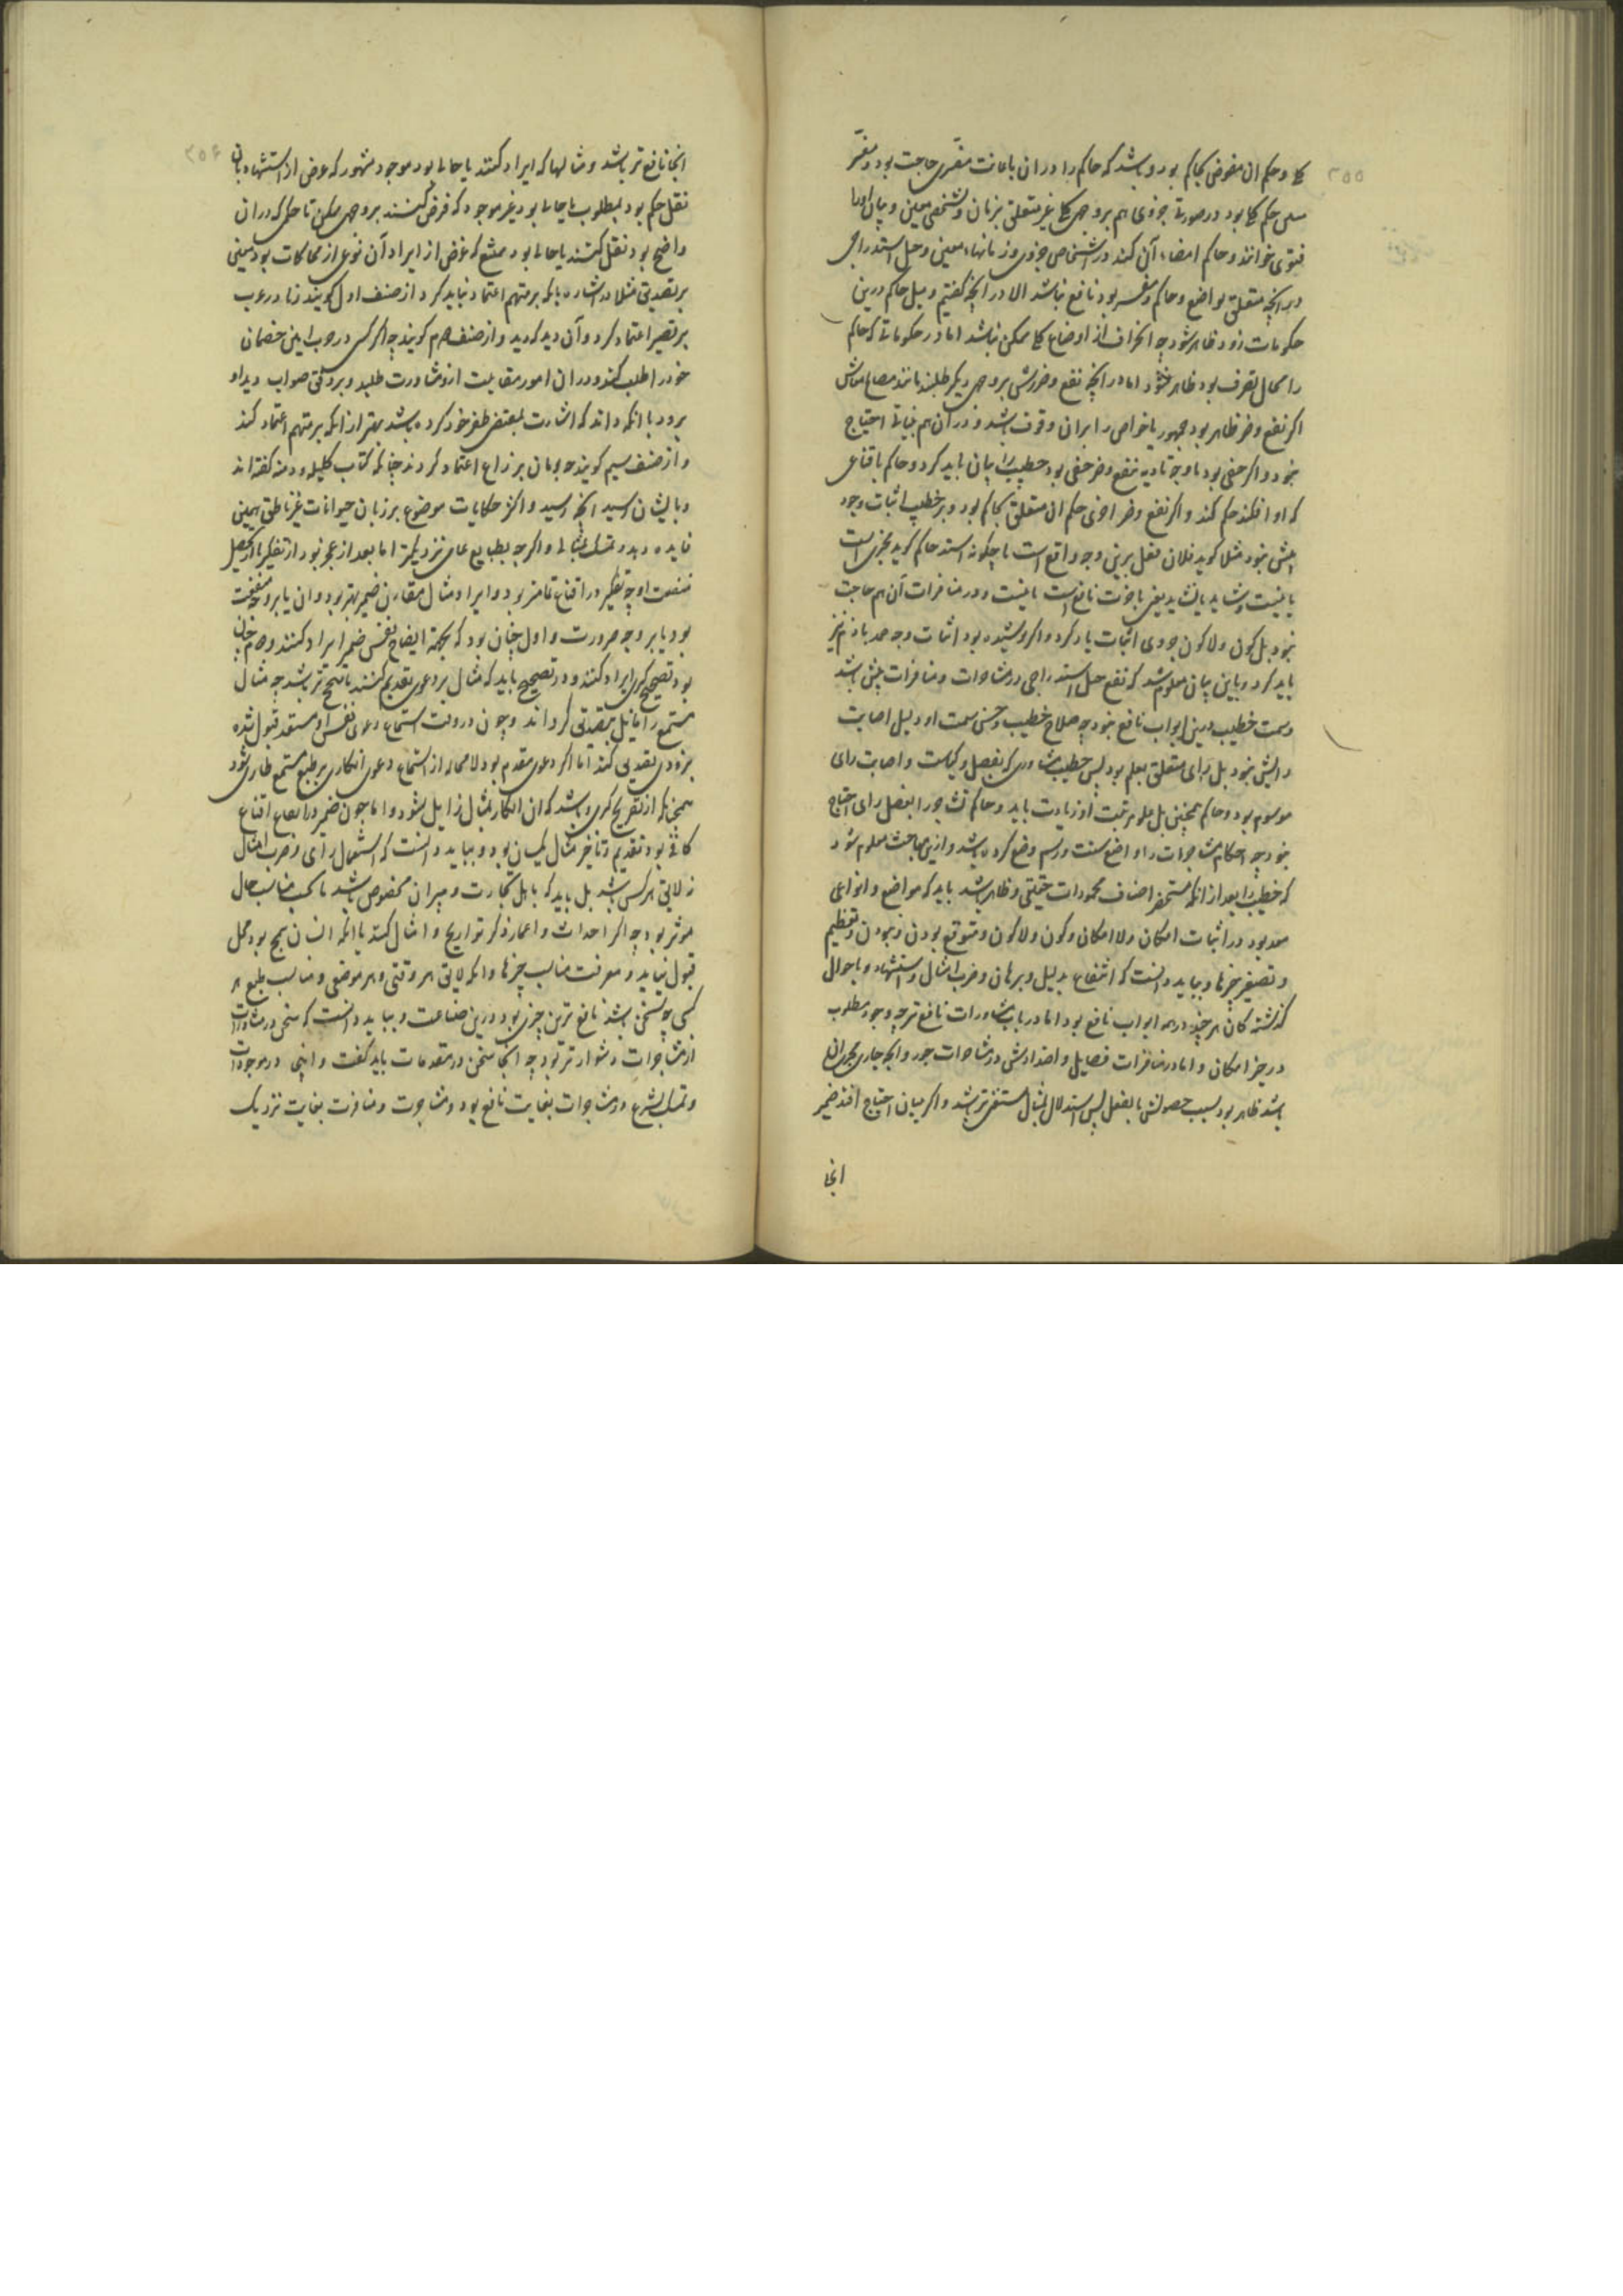 ۲۵۵
و حکم ان مفوض بحاکم بود و باشد که حاکم را در ان باعانت مفسری حاجت بود و مفسر
حکم بود در صورتی جزوی هم بر وجهی غیر متعلق بزمان و شخصی معین و بیان او را
فتوی خوانند و حاکم امضاء آن کند در اشخاص جزوی و زمانهاء معین و حیل استدراجی
در انچه متعلق بواضع و حاکم و مفسر بود نافع نباشد الا در انچه گفتیم و میل حاکم درین
حکومات زود ظاهر شود چه انحراف از اوضاع ممکن نباشد اما در حکوماتی که حاکم
را مجال تصرف بود ظاهر نشود اما در انچه نفع و ضررش بر وجهی دیگر طلبند مانند مصالح معاش
اگر نفع و ضر ظاهر بود جمهور یا خواص را بران وقوف باشد و در ان هم ببیانی احتیاج
نبود و اگر خفی بود خطیب را بیان باید کرد و حاکم باقناعی
که او افکند حکم کند و اگر نفع و ضر حکم ان متعلق بحاکم بود و بر خطیب اثبات وجود
بیش نبود مثلا گوید فلان فعل برین وجه واقع است یا چگونه است حاکم گوید
یا نیست و شاید یا نشاید نافع است یا نیست و در منافرات آن هم حاجت
نبود بل کون و لا کون جزوی اثبات باید کرد و اگر پوشیده بود اثبات وجه حمد یا ذم نیز
باید کرد و باین بیان معلوم شد که نفع حیل استدراجی در مشاجرات و منافرات بیش باشد
و سمت خطیب درین ابواب نافع نبود چه صلاح خطیب و حسن سمت او دلیل اصابت
رایش نبود بل رای متعلق بعلم بود پس خطیب مشاوری که بفضل و کیاست و اصابت رای
موسوم بود و حاکم همچنین بل علو مرتبت او زیادت باید و حاکم تشاجر را بفضل رای احتیاج
نبود چه احکام مشاجرات را واضع سنت و رسم وضع کرده باشد و ازین مباحث معلوم شود
که خطیب را بعد از انکه مستحضر اصناف محمودات حقیقی و ظاهر باشد باید که مواضع و انواعی
معد بود در اثبات امکان و لا امکان و کون و لا کون و متوقع بودن و نبودن و تعظیم
و تصغیر چیزها و بباید دانست که انتفاع بدلیل و برهان و ضرب امثال و استشهاد باحوال
گذشتگان هر چند در همه ابواب نافع بود اما در باب مشاورات نافع تر چه وجود مطلوب
در حیز امکان و اما در منافرات فضایل و اضدادش و در مشاجرات جور و انچه جاری مجری ان
باشد ظاهر بود بسبب حصولش بالفعل پس استدلال بمثال مستغنی تر باشد و اگر ببیان احتیاج افتد ضمیر
انجا
۲۵۶
انجا نافع تر باشد و مثالها که ایراد کنند یا حالی بود موجود مشهور که غرض از استشهاد بان
نقل حکم بود بمطلوب یا حالی بود غیر موجود که فرض کنند بر وجهی ممکن تا حکمی که در ان
واضح بود نقل کنند یا حالی بود ممتنع که غرض از ایراد آن نوعی از محاکات بود معین
بر تصدیق مثلا در اشاره بانکه بر متهم اعتماد نباید کرد از صنف اول گویند
بر قصیر اعتماد کرد و آن دید که دید و از صنف دوم گویند چه اگر کسی در حرب امین خصمان
خود را طلب کند و در ان امور مقاومت از و مشاورت طلبد و بر وفق صواب دید او
برود با انکه داند که اشارت بمقتضی ظفر خود کرده باشد بهتر از انکه بر متهم اعتماد کند
و از صنف سیم گویند بومان بر زاغ اعتماد کردند چنانکه در کتاب کلیله و دمنه گفته اند
و بایشان رسید انچه رسید و اکثر حکایات موضوع بر زبان حیوانات غیر ناطق همین
فایده دهد و تمسک بمثال و اگر چه بطبایع عامی نزدیکتر اما بعد از عجز بود از تفکر یا از تحصیل
منفعت او چه تفکر در اقناع تمامتر بود و ایراد مثال مقارن ضمیر بهتر بود و ان یا بر وجه منفعت
بود یا بر وجه ضرورت و اول چنان بود که بجهة ایضاح نفس ضمیر ایراد کنند و دوم چنان
بود تصحیح کبری ایراد کنند و در تصحیح باید که مثال بر دعوی تقدیم کنند تا نجح تر باشد چه مثال
مستمع را مایل بتصدیق گرداند و چون در وقت استماع دعوی نفس او مستعد قبول شده
بزودی تصدیق کند اما اگر دعوی مقدم بود لا محاله از استماع دعوی انکاری بر طبع مستمع طاری شود
همچنانکه از تصریح کبری و باشد که ان انکار بمثال زایل نشود و اما چون ضمیر در ایقاع اقناع
کافی بود تقدیم و تاخیر مثال یکسان بود و بباید دانست که استعمال رای و ضرب امثال
نه لایق هر کس باشد بل باید که باهل تجارب و پیران مخصوص باشد تا بحسب مناسب حال
موثر بود چه اگر احداث و اغمار ذکر تواریخ و امثال کنند با انکه ایشان سمج بود محل
قبول نیابد و معرفت مناسب چیزها و انکه لایق هر وقتی و هر موضعی و مناسب طبع هر
کسی چه سخن باشد نافع ترین چیزی بود درین صناعت و بباید دانست که سخن در مشاورات
از مشاجرات دشوارتر بود چه انجا سخن در مقدمات باید گفت و اینجا در موجودات
و تمسک بشرع در مشاجرات بغایت نافع بود و مشاجرت و منافرت بغایت نزدیک